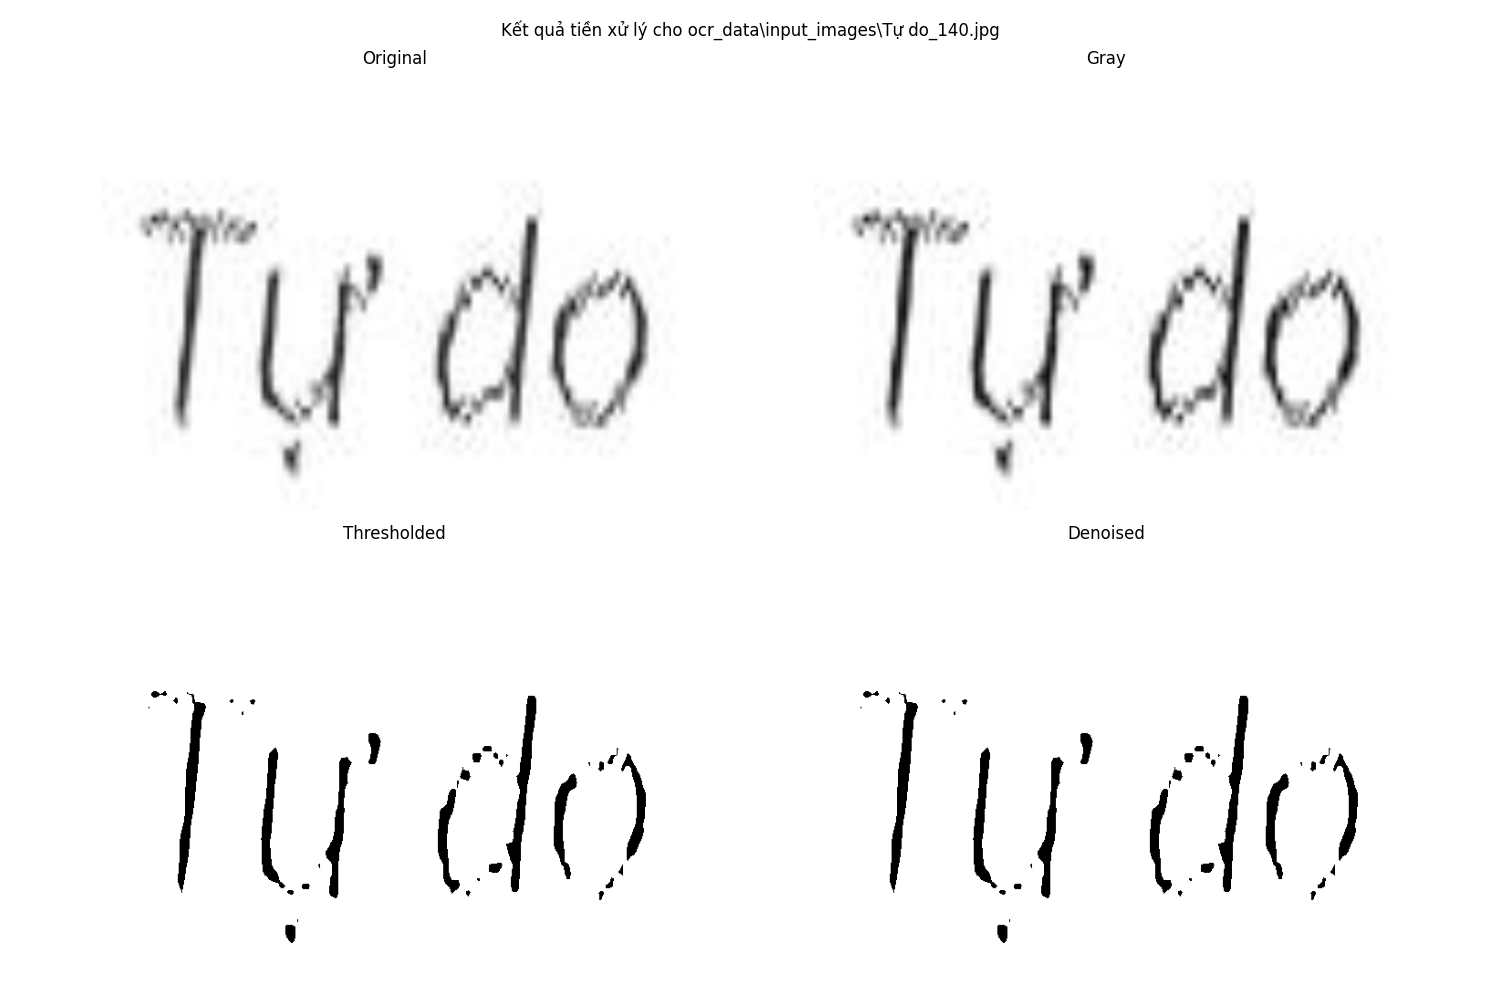 Kết quả tiền xử lý cho ocr_data\input_images\Tự do_140.jpg
Original
Gray
Tự do
Tự do
Thresholded
Denoised
Tự do
Tự do